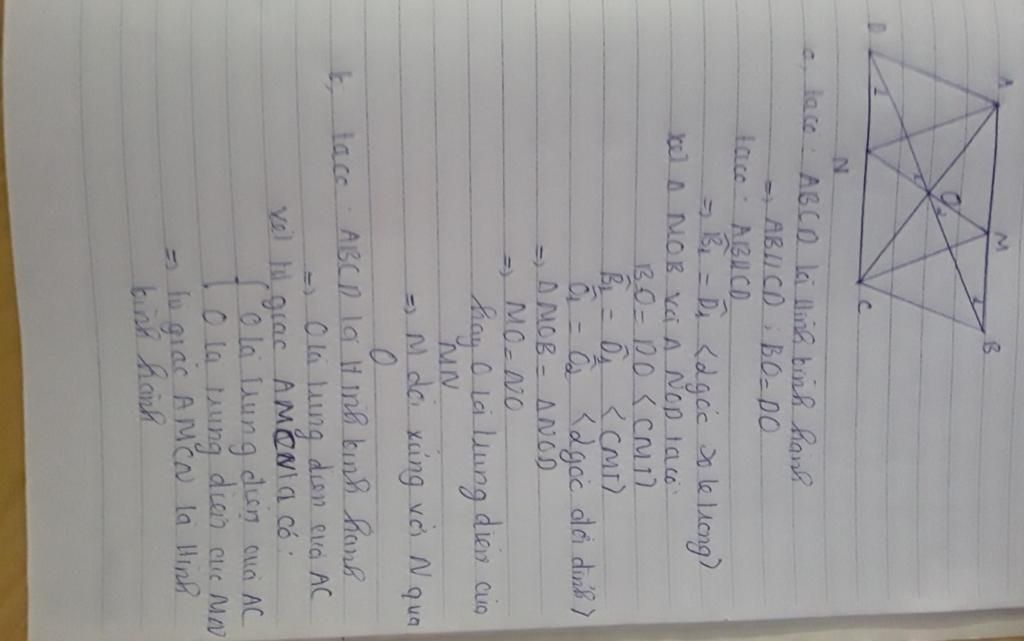 A M B
O₂
1
D N C
a, ta có: ABCD là Hình bình hành
=> AB//CD; BO=DO
ta có: AB//CD
=> B̂₁ = D̂₁ <2góc so le trong>
xét Δ NOB và Δ NOD ta có:
BO = DO <CMT>
B̂₁ = D̂₁ <CMT>
Ô₁ = Ô₂ <2góc đối đỉnh>
=> ΔMOB = ΔNOD
=> MO = NO
hay O là trung điểm của
MN
=> M đối xứng với N qua
O
b, ta có: ABCD là Hình bình hành
=> O là trung điểm của AC
xét tứ giác AMCN ta có:
{ O là trung điểm của AC
{ O là trung điểm của MN
=> tứ giác AMCN là Hình
bình hành